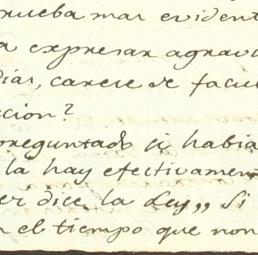 rueba mas evident
a expresar agravi
dias, carece de facul
ccion?
preguntado si habia
la hay efectivamen
er dice la Ley,, Si
n el tiempo que non